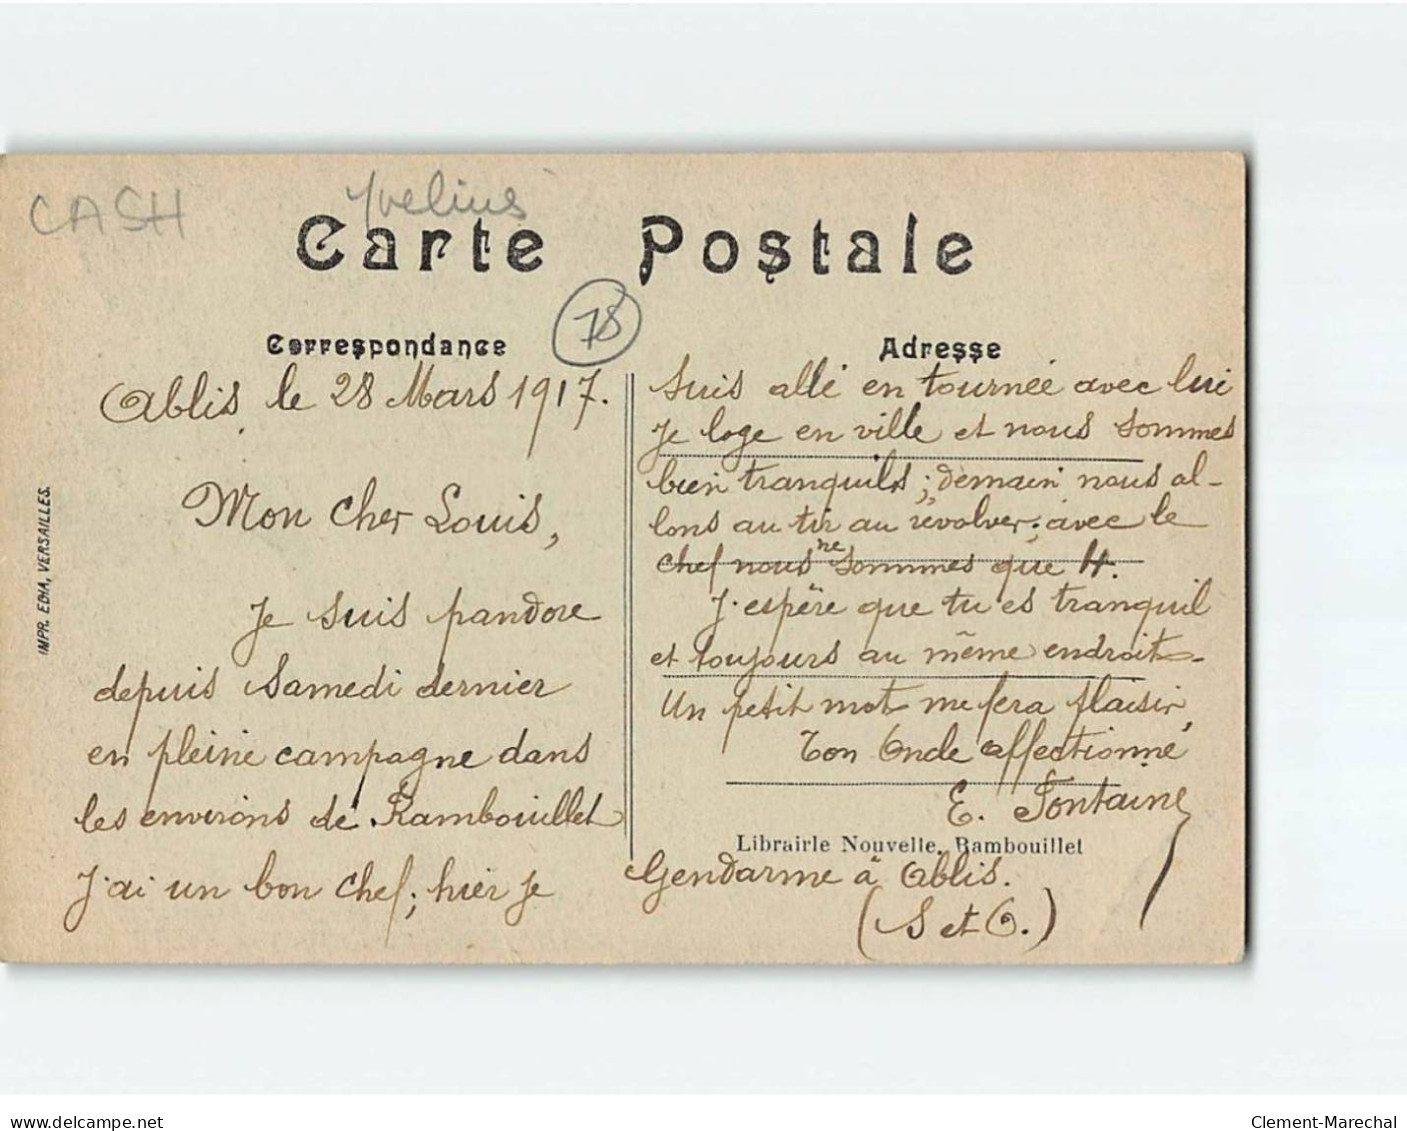 CASH
Yvelines
Carte Postale
78
Correspondance
Ablis le 28 Mars 1917.
Mon cher Louis,
Je suis pandore
depuis Samedi dernier
en pleine campagne dans
les environs de Rambouillet
J'ai un bon chef; hier je
Adresse
suis allé en tournée avec lui
je loge en ville et nous sommes
bien tranquils; demain nous al-
lons au tir au révolver; avec le
chef nous ne sommes que 4.
J'espère que tu es tranquil
et toujours au même endroit.
Un petit mot me fera plaisir,
Ton Oncle affectionné
E. Fontaine
Librairie Nouvelle, Rambouillet
Gendarme à Ablis.
(S et O.)
IMPR. EDIA, VERSAILLES.
www.delcampe.net
Clement-Marechal